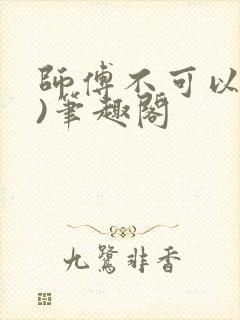 師傅不可以
)筆趣閣
九鷺非香